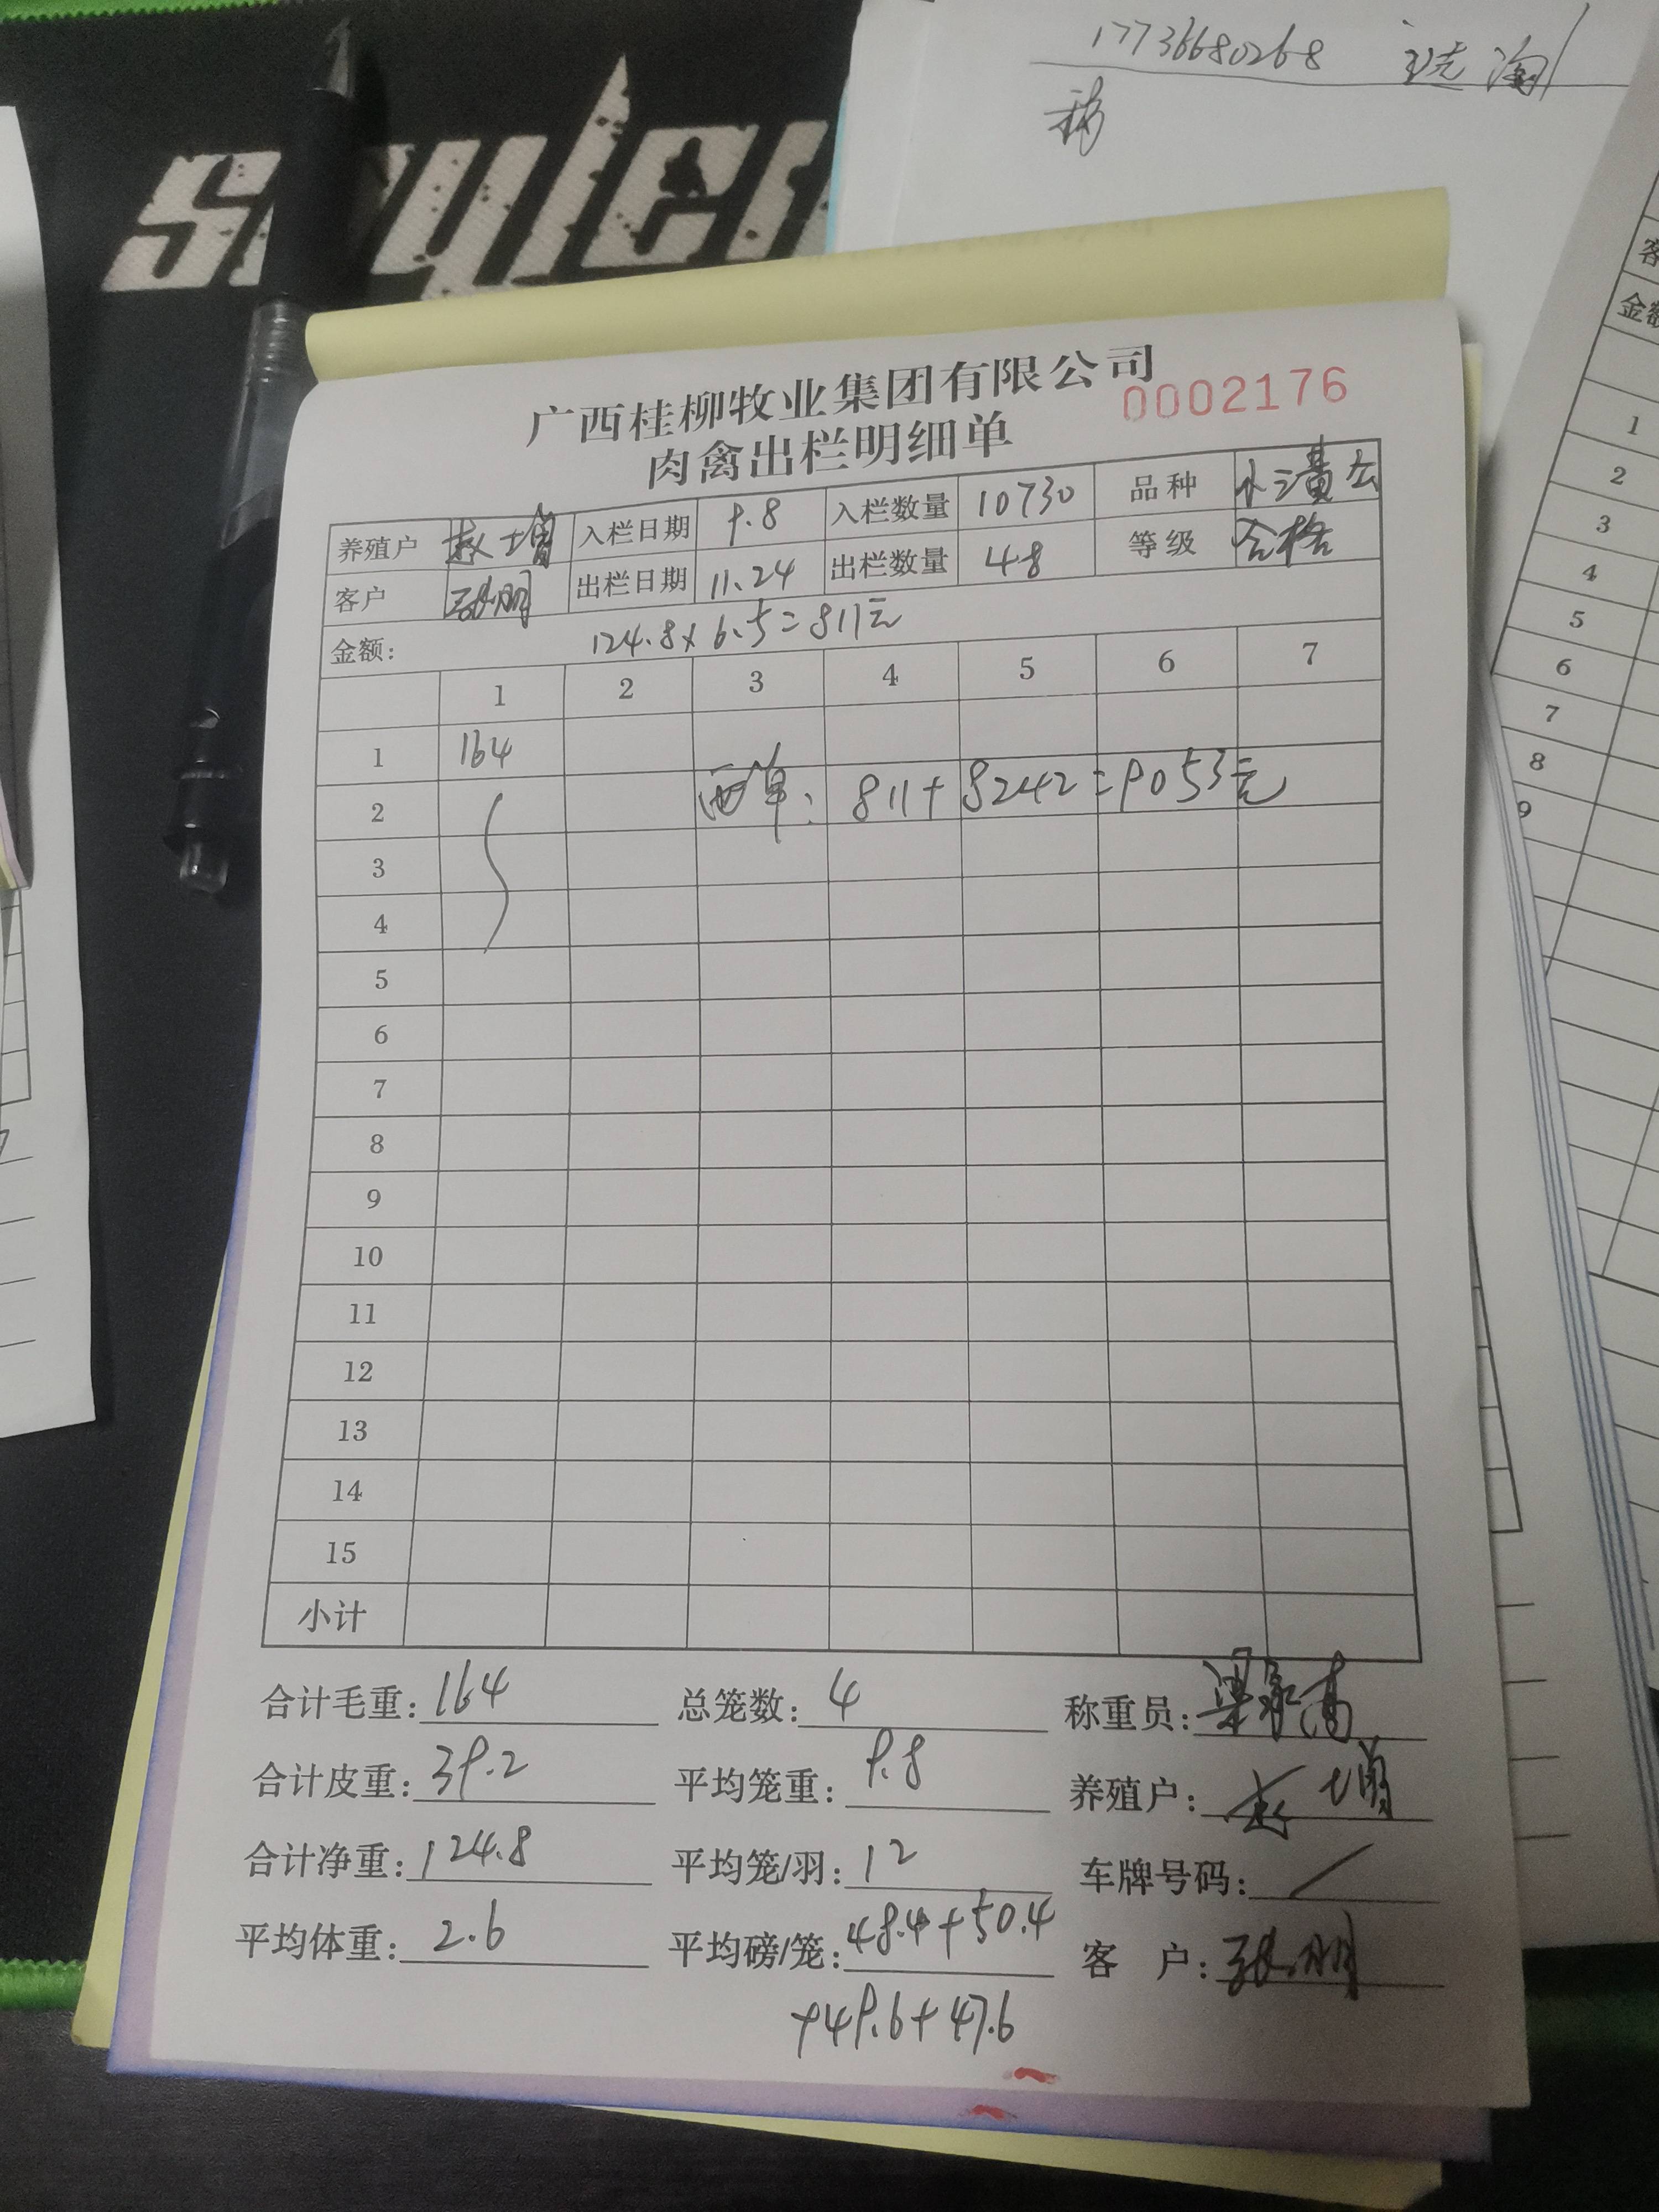 17736680268
广西桂柳牧业集团有限公司
0002176
肉禽出栏明细单
养殖户 赵增 入栏日期 9.8 入栏数量 10730 品种 小三黄公
客户 张朋 出栏日期 11.24 出栏数量 48 等级 合格
金额: 124.8×6.5=811元
1 2 3 4 5 6 7
1 164
2 两单: 811+8242=9053元
3
4
5
6
7
8
9
10
11
12
13
14
15
小计
合计毛重: 164 总笼数: 4 称重员: 梁永高
合计皮重: 39.2 平均笼重: 9.8 养殖户: 赵增
合计净重: 124.8 平均笼/羽: 12 车牌号码: /
平均体重: 2.6 平均磅/笼: 48.4+50.4 客 户: 张朋
+49.6+47.6
客
金额
1
2
3
4
5
6
7
8
9